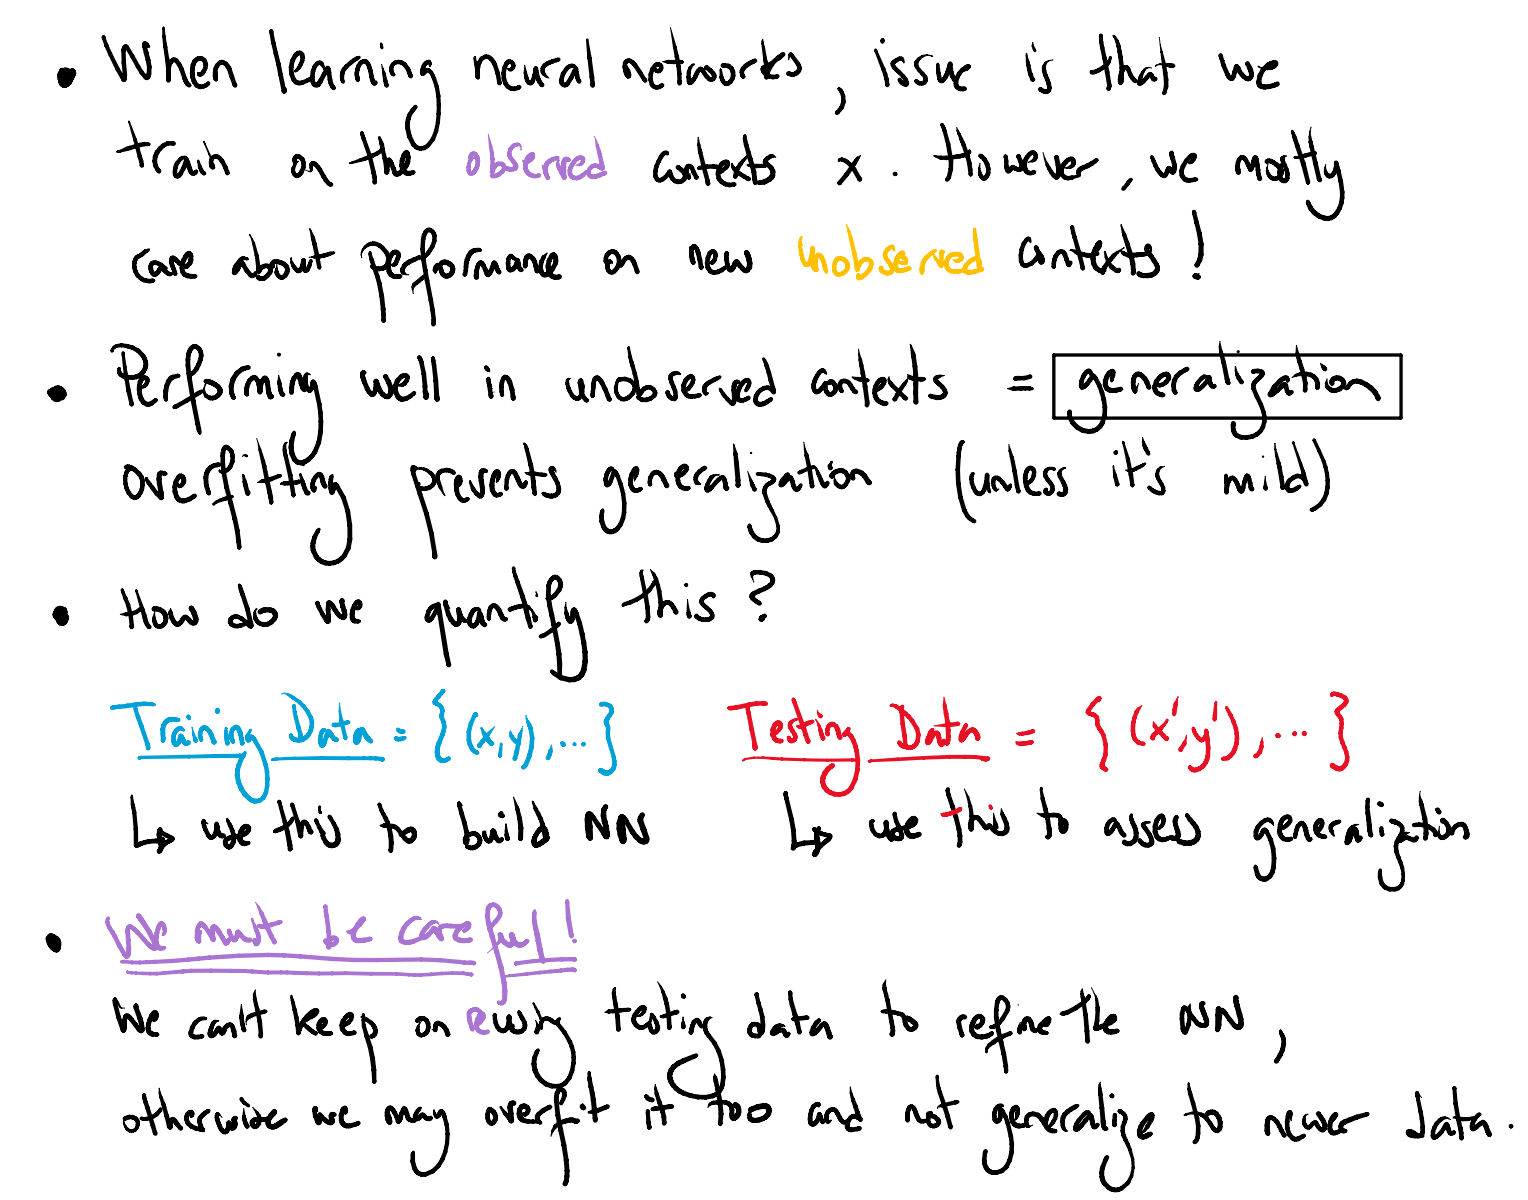 • When learning neural networks, issue is that we
train on the observed contexts x. However, we mostly
care about performance on new unobserved contexts!
• Performing well in unobserved contexts = generalization
overfitting prevents generalization (unless it's mild)
• How do we quantify this?
Training Data = {(x,y),...} Testing Data = {(x',y'),...}
↳ use this to build NN ↳ use this to assess generalization
• We must be careful!
We can't keep on reusing testing data to refine the NN,
otherwise we may overfit it too and not generalize to newer data.